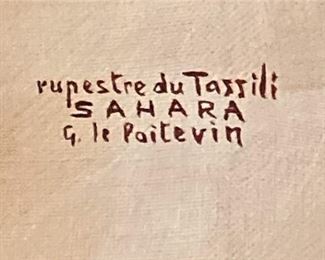 rupestre du Tassili
SAHARA
G. le Poitevin